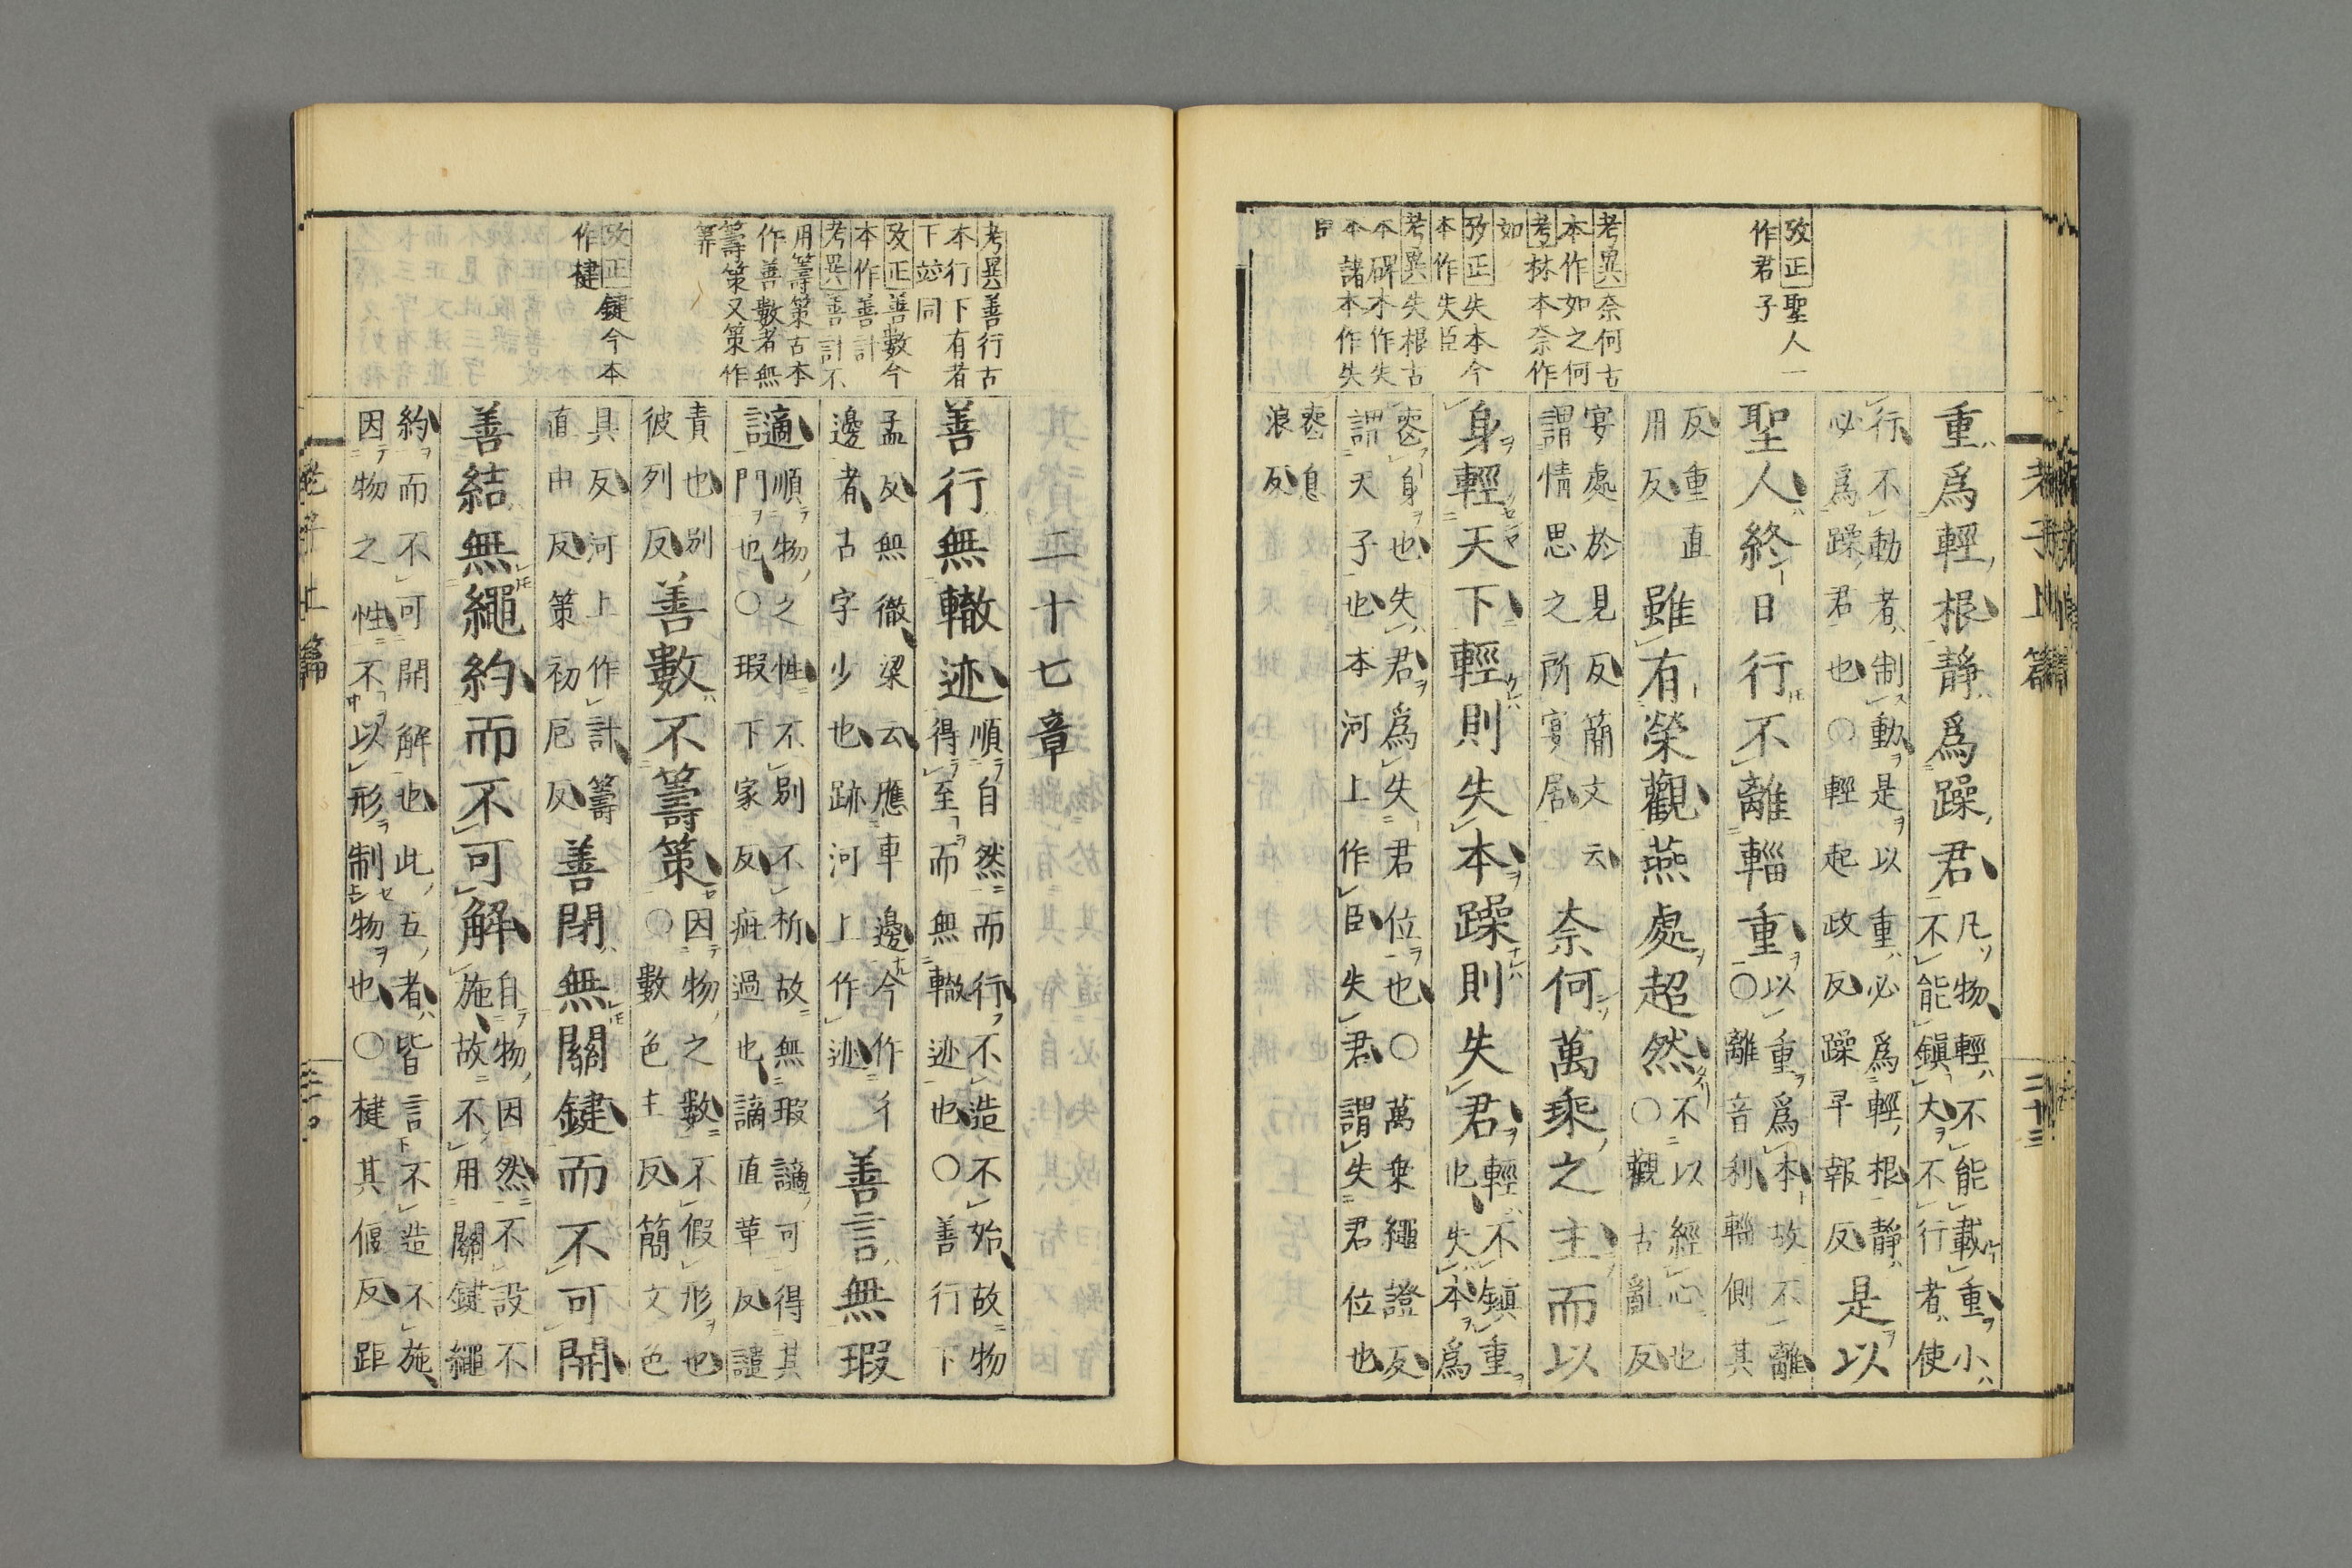 老子上篇
二十三
攷正聖人一
作君子
考異奈何古
本作如之何
考林本奈作
如
攷正失本今
本作失臣
考異失根古
本碑本作失
本諸本作失
臣
重爲輕根靜爲躁君
凡物輕不能載重小
不能鎭大不行者使
行不動者制動是以重必爲輕根靜
必爲躁君也○輕起政反躁早報反
是以
聖人終日行不離輜重
以重爲本故不離
○離音利輜側其
反重直
用反
雖有榮觀燕處超然
不以經心也
○觀古亂反
宴處於見反簡文云
謂情思之所宴居
奈何萬乘之主而以
身輕天下輕則失本躁則失君
輕不鎭重
也失本爲
喪身也失君爲失君位也○萬乘繩證反
謂天子也本河上作臣失君謂失君位也
喪息
浪反
考異善行古
本行下有者
下竝同
攷正善數今
本作善計
考異善計不
用籌策古本
作善數者無
籌策又策作
筭
攷正鍵今本
作楗
二十七章
善行無轍迹
順自然而行不造不始故物
得至而無轍迹也○善行下
孟反無徹梁云應車邊今作彳
邊者古字少也跡河上作迹
善言無瑕
讁
順物之性不別不析故無瑕讁可得其
門也○瑕下家反疵過也讁直革反譴
責也別
彼列反
善數不籌策
因物之數不假形也
○數色主反簡文色
具反河上作計籌
直由反策初厄反
善閉無關鍵而不可開
善結無繩約而不可解
自物因然不設不
施故不用關鍵繩
約而不可開解也此五者皆言不造不施
因物之性不以形制物也○楗其偃反距
老子上篇